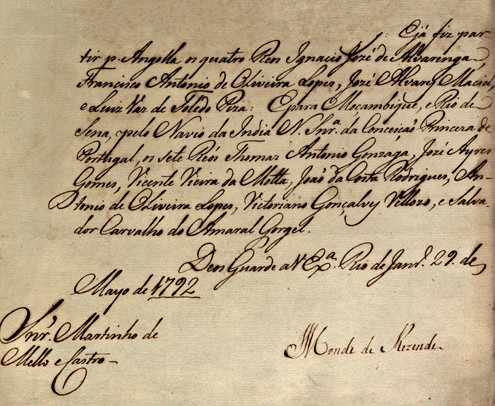 : Ejá fiz par-
tir p.ª Angolla os quatro Reos Ignacio José de Alvarenga,
Francisco Antonio de Oliveira Lopes, José Alvares Maciel,
e Luiz Váz de Toledo Piza: E para Moçambique, e Rio de
Sena, pelo Navio da India N. Snr.ª da Conceiçaõ Princeza de
Portugal, os sete Reós Thomaz Antonio Gonzaga, Jozé Ayres
Gomes, Vicente Vieira da Motta, Joaõ da Costa Rodrigues, An-
tonio de Oliveira Lopes, Victoriano Gonçalvy Vellozo, e Salva-
dor Carvalho do Amaral Gorgel.
Deos Guarde a V Ex.ª Rio de Janr.º 29. de
Mayo de 1792
Snr. Martinho de
Mello e Castro
Conde de Rezende.